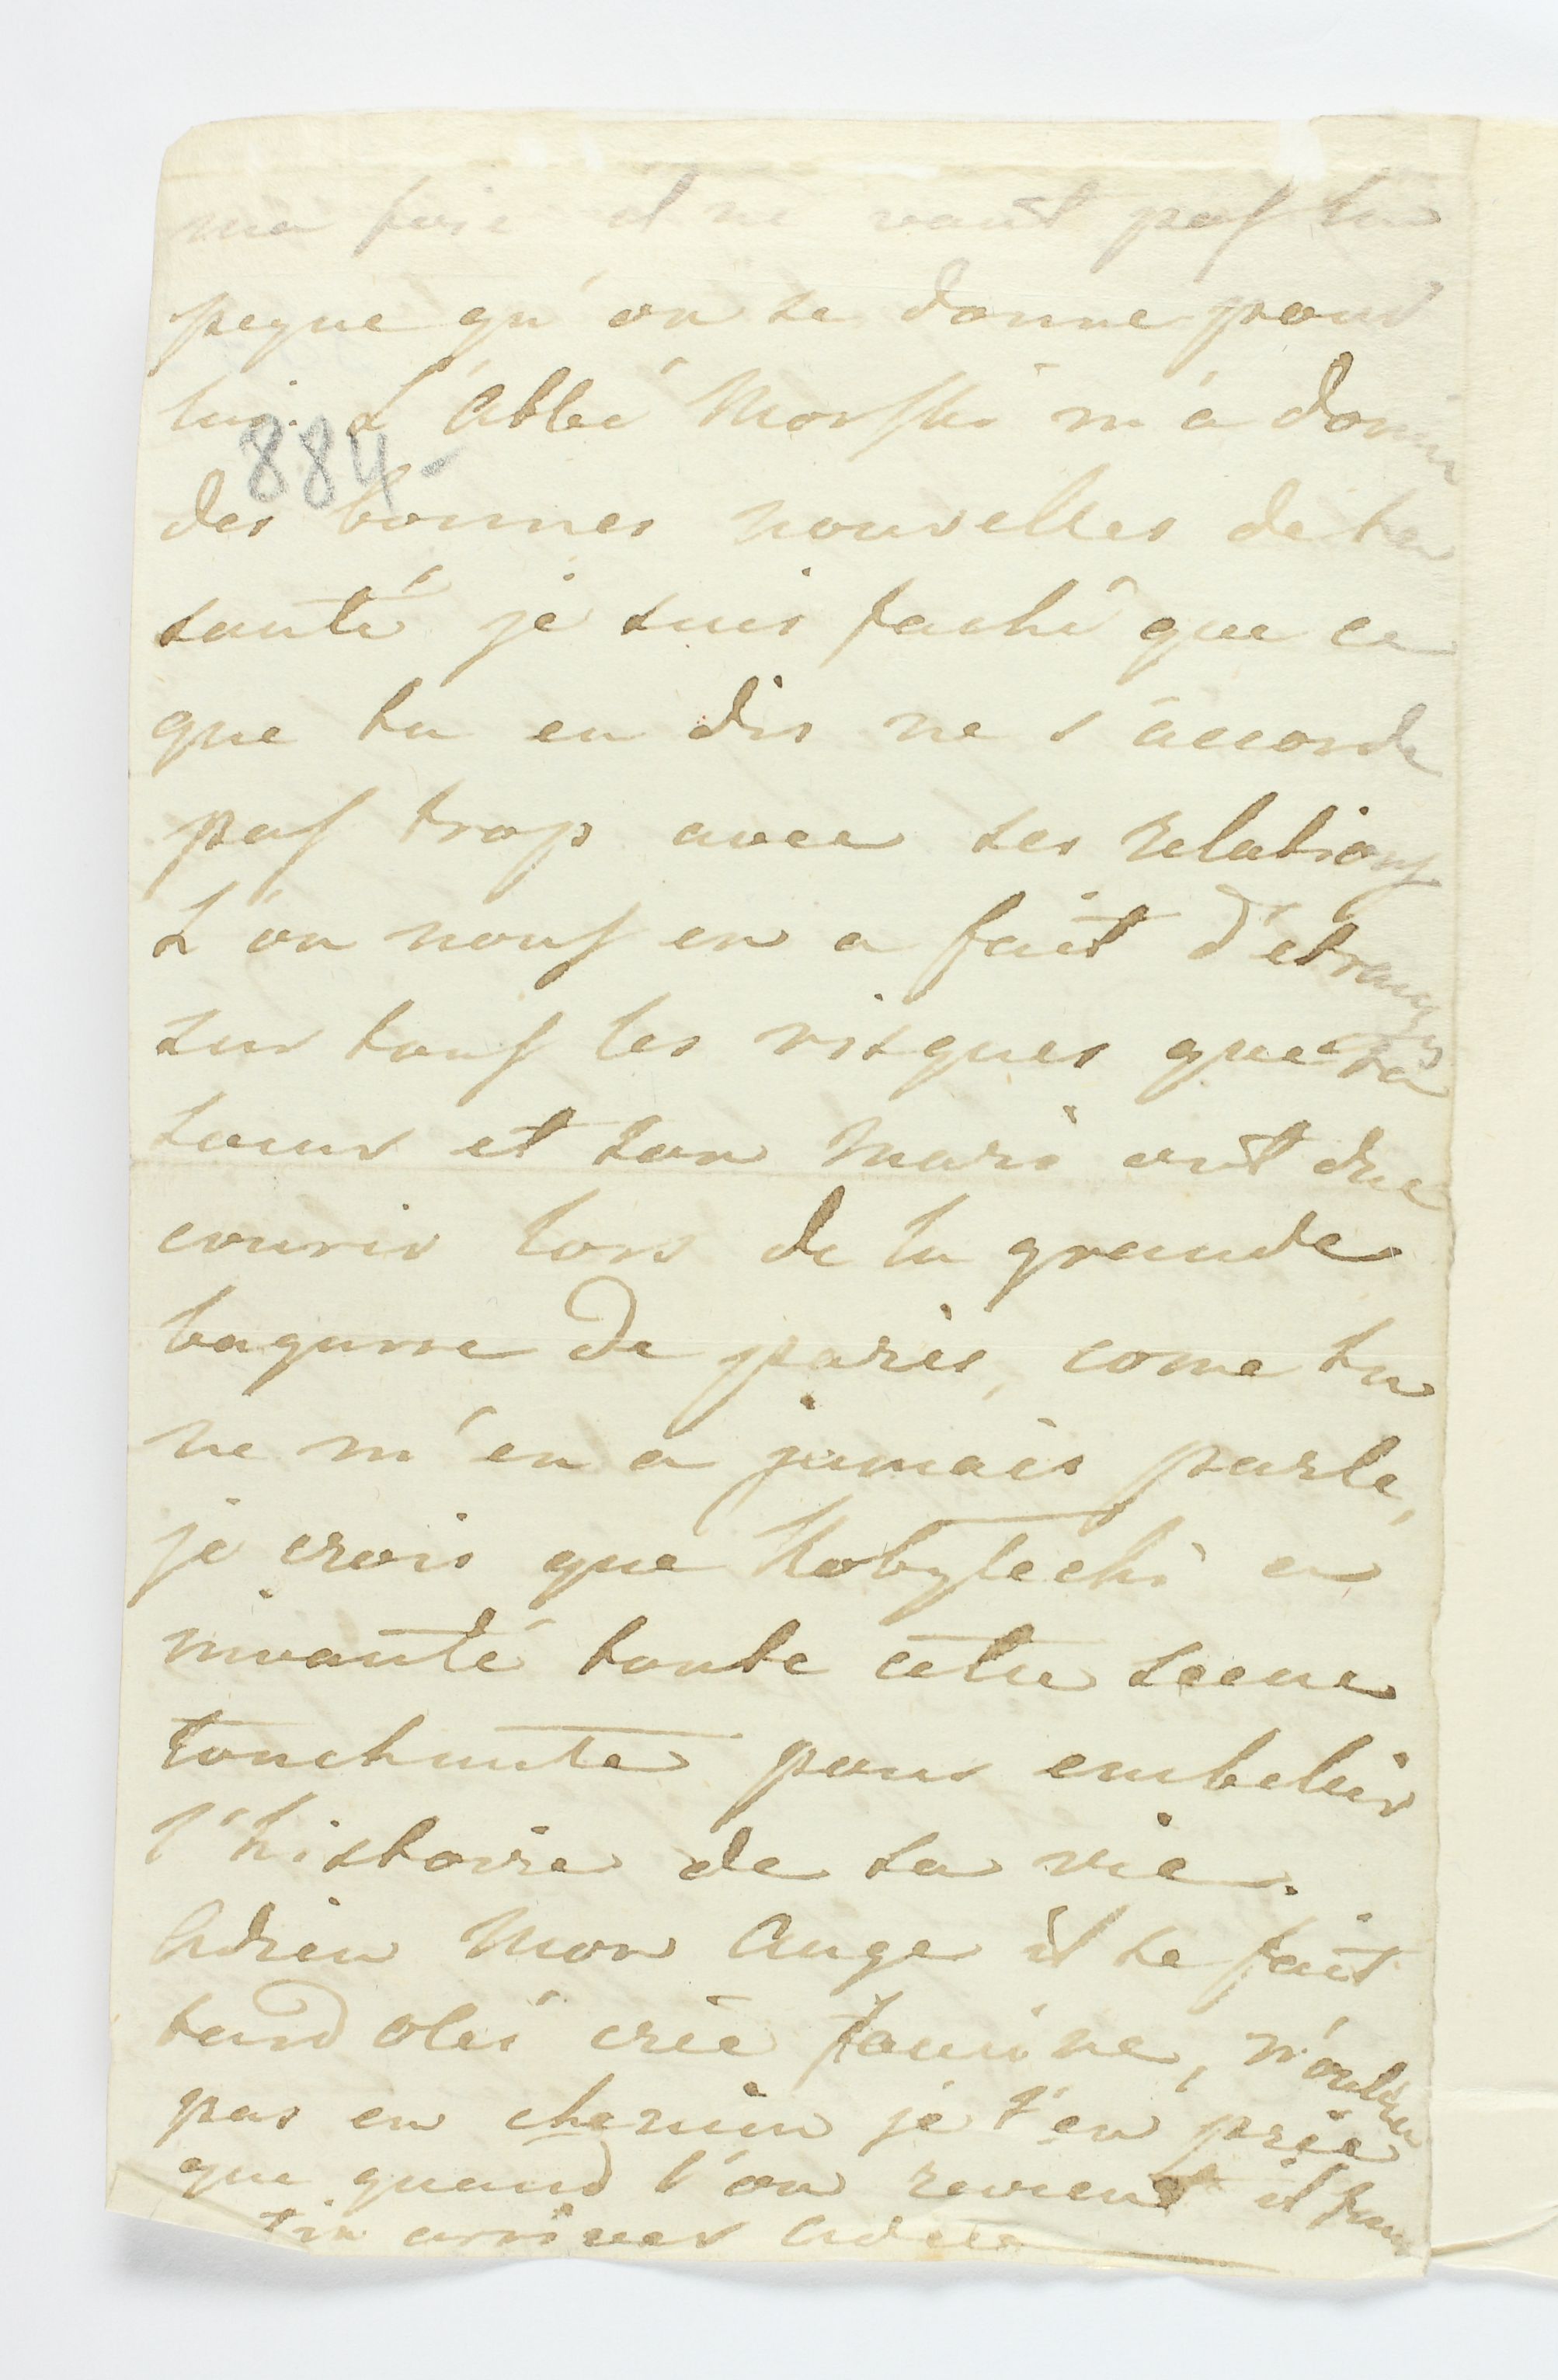 ma foie il ne vaut pas la
peque qu'on se donne pour
lui. L'Abbé Morski m'a donné
884
des bonnes nouvelles de ta
santé je suis faché que ce
que tu en dis ne s'accorde
pas trop avec ses relations
L'on nous en a fait d'étranges
sur tous les risques que ta
soeur et son Mari ont due
courir lors de la grande
bagarre de paris, come tu
ne m'en a jamais parle,
je crois que Kobylecki a
invanté toute cette scene
touchante pour embelir
l'histoire de sa vie.
Adieu Mon Ange il se fait
tard crie n'oublie
pas en chemin je t'en prie
que quand l'on revient il faut
arriver Adieu